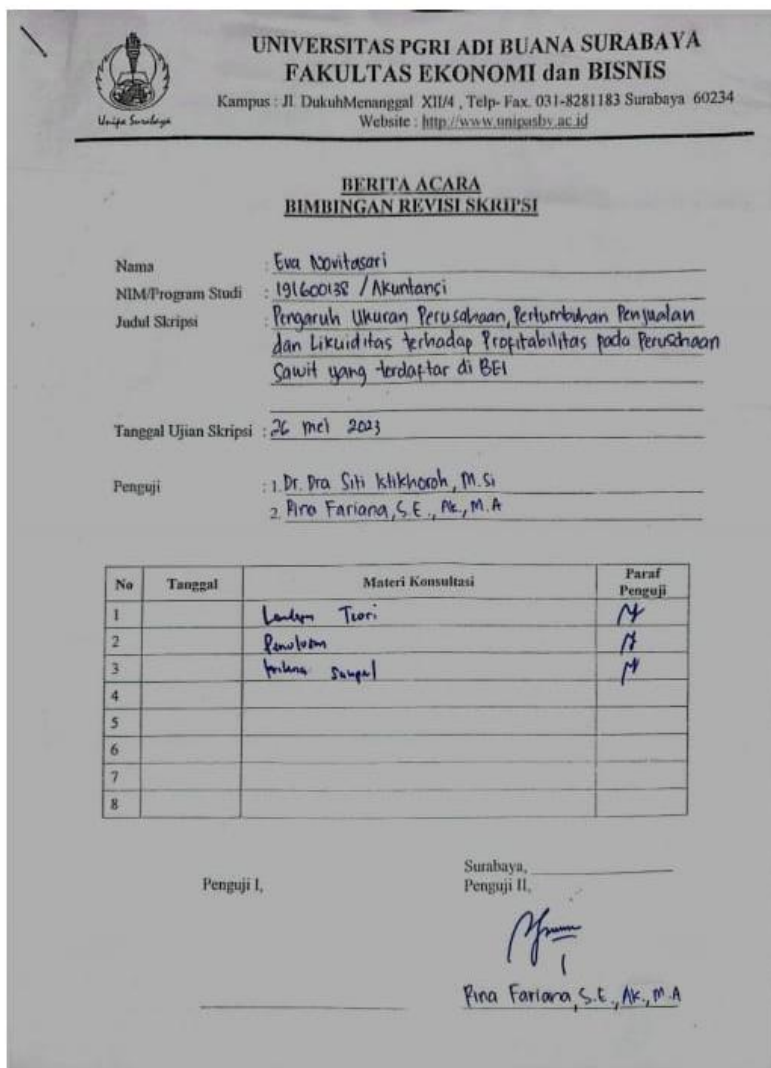 UNIVERSITAS PGRI ADI BUANA SURABAYA
FAKULTAS EKONOMI dan BISNIS
Kampus : Jl. DukuhMenanggal XII/4 , Telp- Fax. 031-8281183 Surabaya 60234
Website : http://www.unipasby.ac.id
Unipa Surabaya
BERITA ACARA
BIMBINGAN REVISI SKRIPSI
Nama : Eva Novitasari
NIM/Program Studi : 191600138 / Akuntansi
Judul Skripsi : Pengaruh Ukuran Perusahaan, Pertumbuhan Penjualan
dan Likuiditas terhadap Profitabilitas pada Perusahaan
Sawit yang terdaftar di BEI
Tanggal Ujian Skripsi : 26 Mei 2023
Penguji : 1. Dr. Dra Siti Istikhoroh, M.Si
2. Rina Fariana, S.E., Ak., M.A
No Tanggal Materi Konsultasi Paraf Penguji
1 Landasan Teori
2 Penulisan
3 kriteria Sampel
4
5
6
7
8
Surabaya,
Penguji I, Penguji II,
Rina Fariana, S.E., Ak., M.A